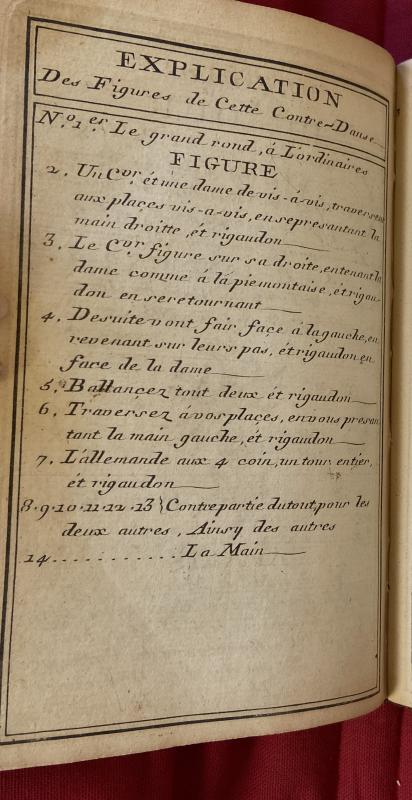 EXPLICATION
Des Figures de Cette Contre-Danse
N.º 1.er Le grand rond, á L'ordinaires
FIGURE
2. Un C.vr ét une dame de vis-á-vis, traversent
aux plaçes vis-a-vis, en se presantant la
main droitte, ét rigaudon
3. Le C.vr figure sur sa droite, en tenant la
dame comme á la piemontaise, ét rigau-
don en se retournant
4. De suite vont fair façe á la gauche, en
revenant sur leurs pas, ét rigaudon en
façe de la dame
5. Ballançez tout deux ét rigaudon
6. Traversez á vos plaçes, en vous presan
tant la main gauche, ét rigaudon
7. L'allemande aux 4 coin, un tour entier,
ét rigaudon
8.9.10.11.12.13 } Contrepartie du tout, pour les
deux autres, Ainsy des autres
14 ........... La Main